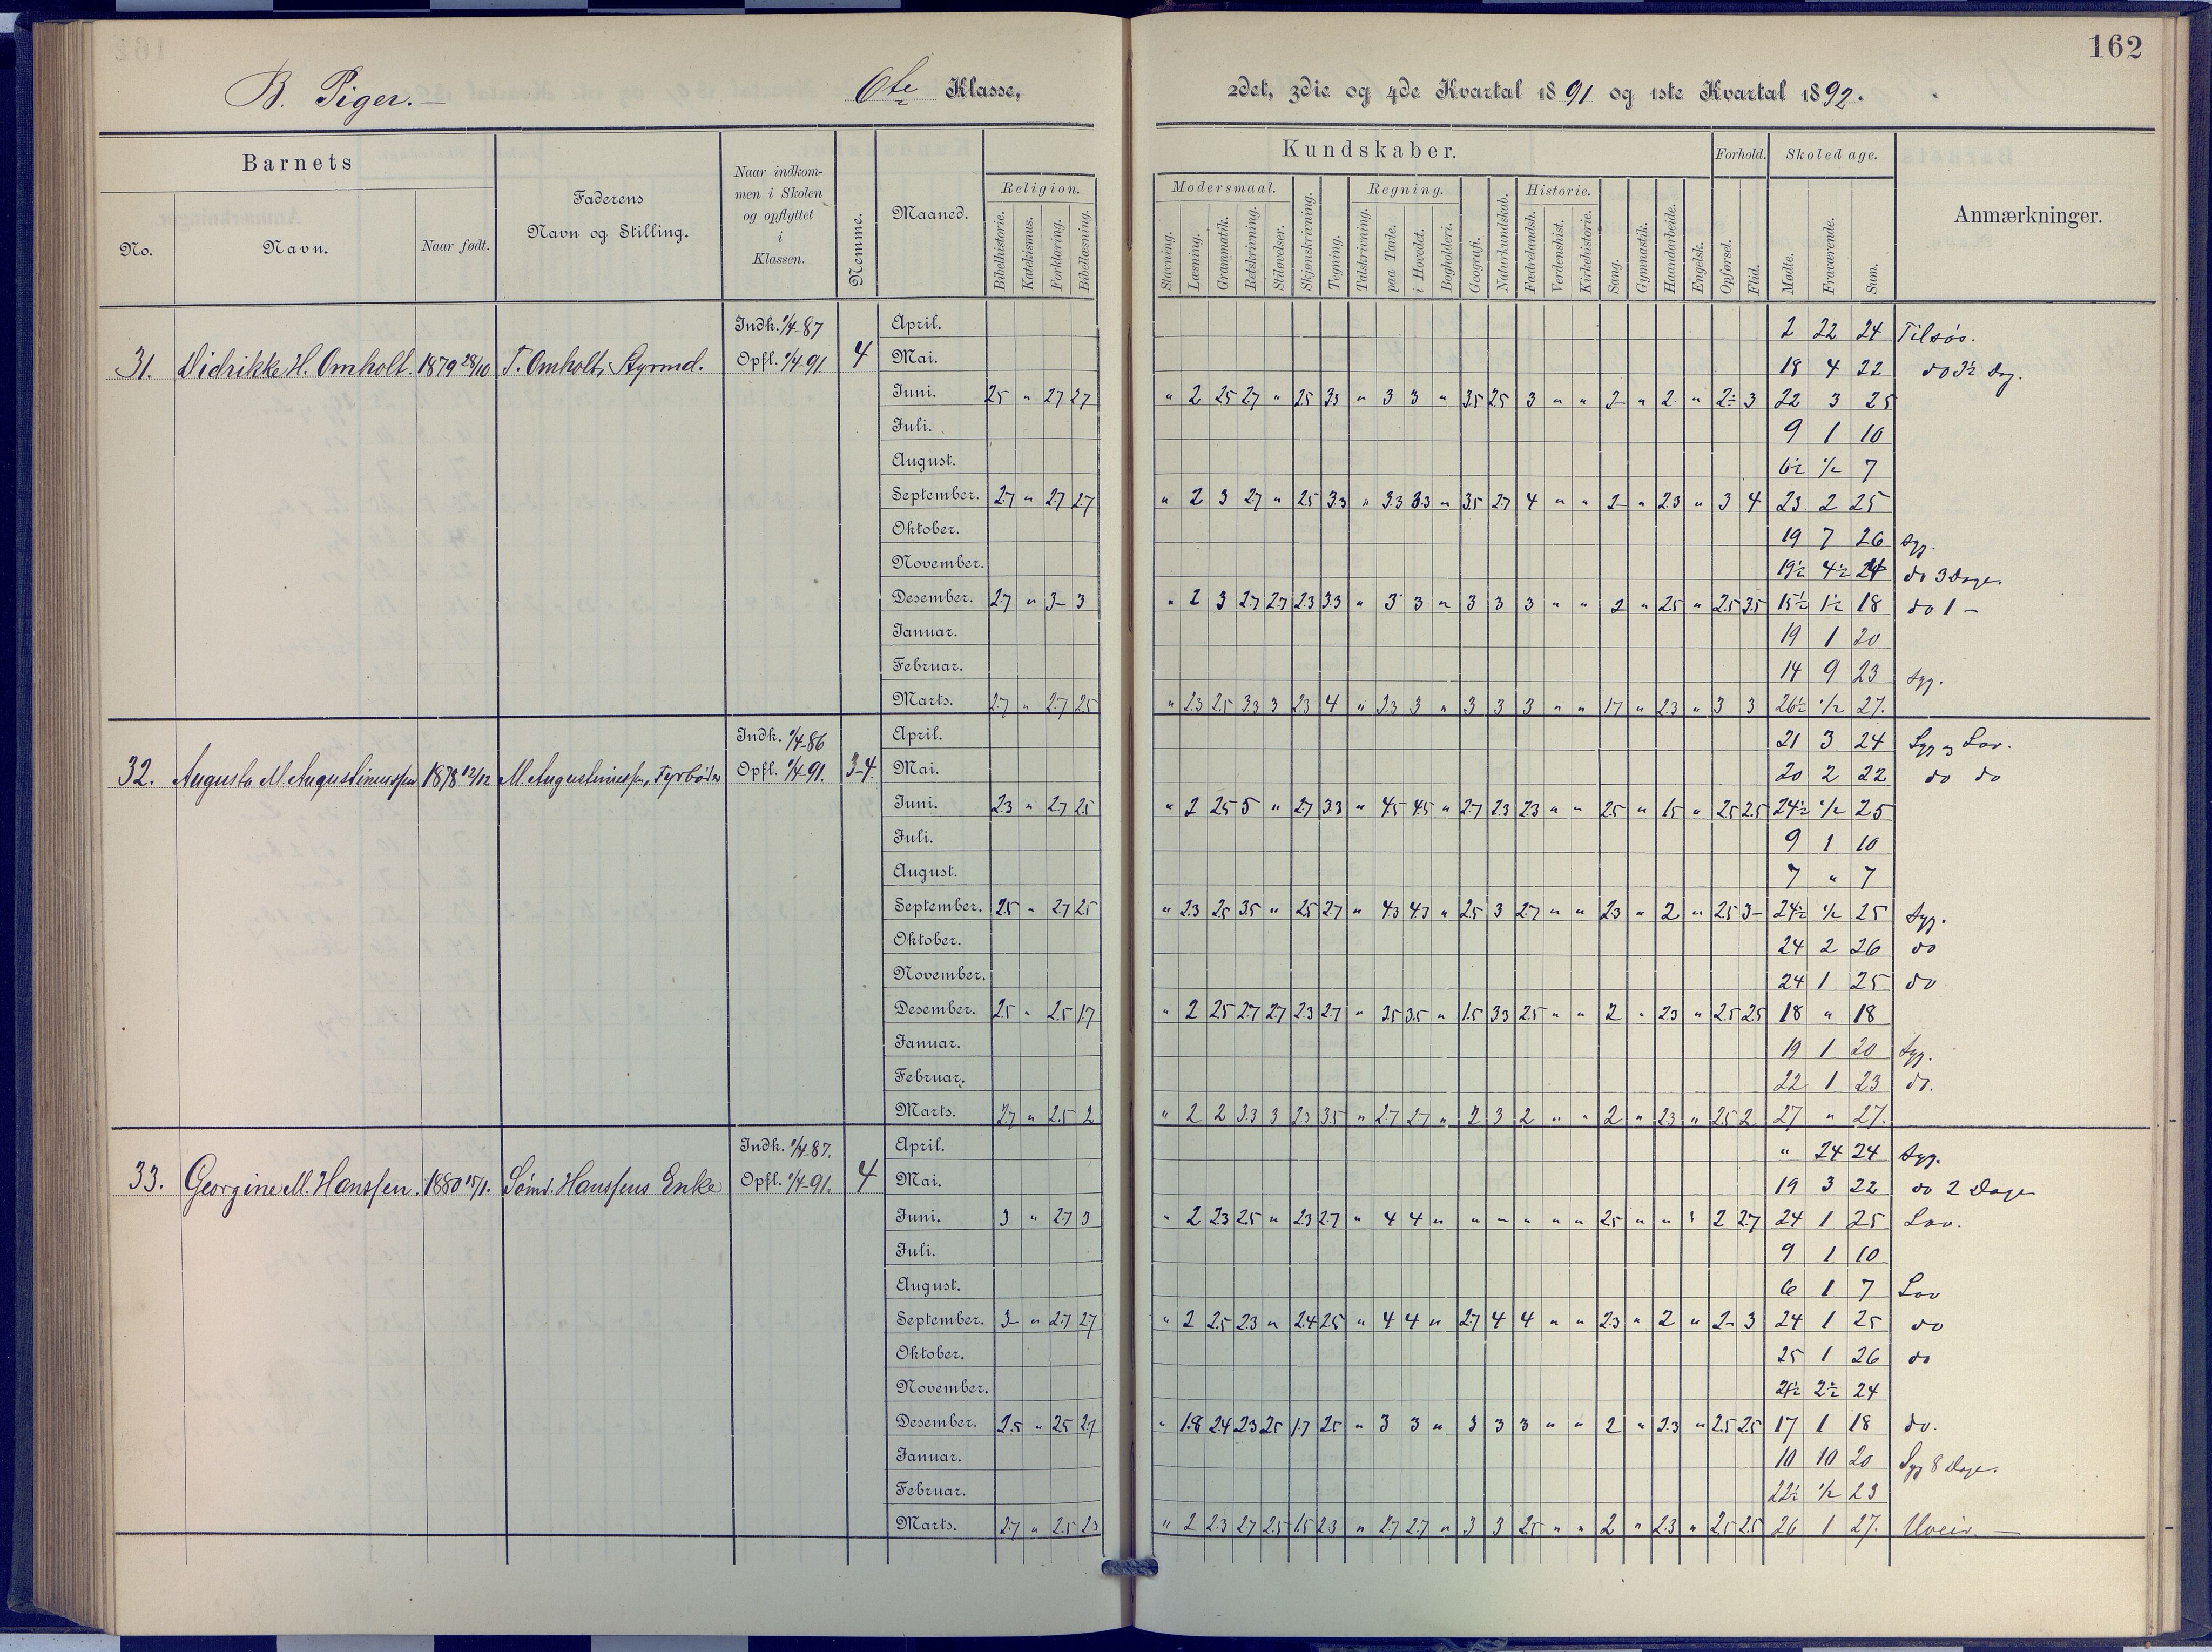 162
B. Piger. — 6te Klasse, 2det, 3die og 4de Kvartal 1891 og 1ste Kvartal 1892.
Barnets
No.
Navn.
Naar født.
Faderens
Navn og Stilling.
Naar indkom-
men i Skolen
og opflyttet
i
Klassen.
Nemme.
Maaned.
Kundskaber.
Religion.
Bibelhistorie.
Katekismus.
Forklaring.
Bibellæsning.
Modersmaal.
Stavning.
Læsning.
Grammatik.
Retskrivning.
Stiløvelser.
Skjønskrivning.
Tegning.
Regning.
Talskrivning.
paa Tavle.
i Hovedet.
Bogholderi.
Geografi.
Naturkundskab.
Historie.
Fædrelandsh.
Verdenshist.
Kirkehistorie.
Sang.
Gymnastik.
Haandarbeide.
Engelsk.
Forhold.
Opførsel.
Flid.
Skoledage.
Mødte.
Fraværende.
Sum.
Anmærkninger.
31. Didrikke H. Omholt. 1879 28/10 T. Omholt, Styrmd. Indk. 1/4-87 Opfl. 1/4 91. 4
April. 2 22 24 Tilsøs.
Mai. 18 4 22 do 3½ Dag.
Juni. 25 " 27 27 " 2 25 27 " 25 33 " 3 3 " 35 25 3 " " 2- " 2 " 2- 3 22 3 25
Juli. 9 1 10
August. 6½ ½ 7
September. 27 " 27 27 " 2 3 27 " 25 33 " 33 33 " 35 27 4 " " 2- " 23 " 3 4 23 2 25
Oktober. 19 7 26 syg.
November. 19½ 4½ 24 do 3 Dage.
Desember. 27 " 3- 3 " 2 3 27 27 23 33 " 3 3 " 3 3 3 " " 2 " 25 " 25 35 15½ 1½ 18 do 1 —
Januar. 19 1 20
Februar. 14 9 23 syg.
Marts. 27 " 27 25 " 23 25 33 3 23 4 " 33 3 " 3 3 3 " " 17 " 23 " 3 3 26½ ½ 27.
32. Augusta M. Augustinussen 1878 12/12 M. Augustinussen, Fyrbøder Indk. 1/4-86 Opfl. 1/4 91. 3-4.
April. 21 3 24 Syg og Lov.
Mai. 20 2 22 do do
Juni. 23 " 27 25 " 2 25 5 " 27 33 " 45 45 " 27 23 23 " " 25 " 15 " 25 25 24½ ½ 25
Juli. 9 1 10
August. 7 " 7
September. 25 " 27 25 " 23 25 35 " 25 27 " 43 43 " 25 3 27 " " 23 " 2 " 25 3- 24½ ½ 25 syg.
Oktober. 24 2 26 do
November. 24 1 25 do
Desember. 25 " 25 17 " 2 25 27 27 23 27 " 35 35 " 15 33 25 " " 2 " 23 " 25 25 18 " 18
Januar. 19 1 20 syg.
Februar. 22 1 23 do.
Marts. 27 " 25 2 " 2 2 33 3 23 35 " 27 27 " 2 3 2 " " 2 " 23 " 25 2 27 " 27.
33. Georgine M. Hanssen. 1880 15/1. Sømd. Hanssens Enke Indk. 1/4 87. Opfl. 1/4-91. 4
April. " 24 24 syg.
Mai. 19 3 22 do 2 Dage
Juni. 3 " 27 3 " 2 23 25 " 23 27 " 4 4 " " " " " " 25 " " " 2 27 24 1 25 Lov.
Juli. 9 1 10
August. 6 1 7 Lov
September. 3- " 27 27 " 2 25 23 " 24 25 " 4 4 " 27 4 4 " " 23 " 2 " 2- 3 24 1 25 do
Oktober. 25 1 26 do
November. 21½ 2½ 24
Desember. 25 " 25 27 " 18 24 23 25 17 25 " 3 3 " 3 3 3 " " 2 " 23 " 25 25 17 1 18 do.
Januar. 10 10 20 Syg 8 Dage.
Februar. 22½ ½ 23
Marts. 27 " 25 23 " 2 23 27 25 15 23 " 27 27 " 3 3 25 " " 2 " 23 " 25 25 26 1 27. Uveir. —